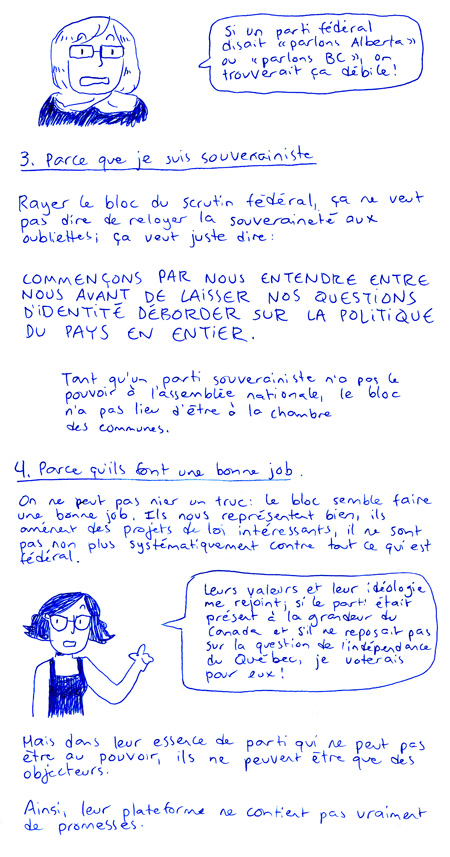 Si un parti fédéral
disait «parlons Alberta»
ou «parlons BC», on
trouverait ça débile!
3. Parce que je suis souverainiste
Rayer le bloc du scrutin fédéral, ça ne veut
pas dire de reloyer la souveraineté aux
oubliettes; ça veut juste dire:
COMMENÇONS PAR NOUS ENTENDRE ENTRE
NOUS AVANT DE LAISSER NOS QUESTIONS
D'IDENTITÉ DÉBORDER SUR LA POLITIQUE
DU PAYS EN ENTIER.
Tant qu'un parti souverainiste n'a pas le
pouvoir à l'assemblée nationale, le bloc
n'a pas lieu d'être à la chambre
des communes.
4. Parce qu'ils font une bonne job.
On ne peut pas nier un truc: le bloc semble faire
une bonne job. Ils nous représentent bien, ils
amènent des projets de loi intéressants, il ne sont
pas non plus systématiquement contre tout ce qui est
fédéral.
Leurs valeurs et leur idéologie
me rejoint; si le parti était
présent à la grandeur du
Canada et s'il ne reposait pas
sur la question de l'indépendance
du Québec, je voterais
pour eux!
Mais dans leur essence de parti qui ne peut pas
être au pouvoir, ils ne peuvent être que des
objecteurs.
Ainsi, leur plateforme ne contient pas vraiment
de promesses.